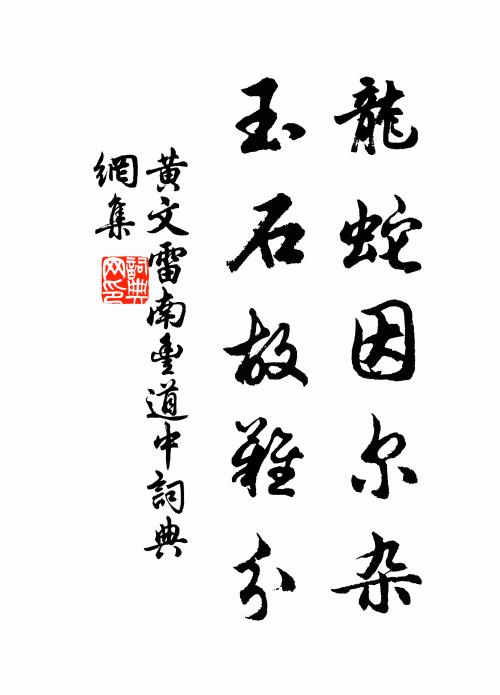 龍蛇因尔杂
玉石故難分
黄文雷南豊道中詞典
網集
詞典网印